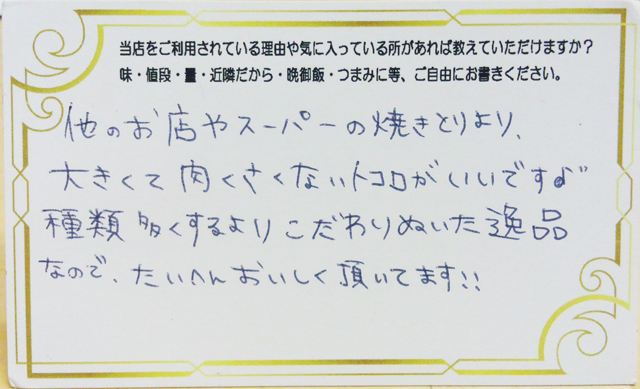 当店をご利用されている理由や気に入っている所があれば教えていただけますか？
味・値段・量・近隣だから・晩御飯・つまみに等、ご自由にお書きください。
他のお店やスーパーの焼きとりより、
大きくて肉くさくないトコロがいいですよ
種類多くするよりこだわりぬいた逸品
なので、たいへんおいしく頂いてます!!